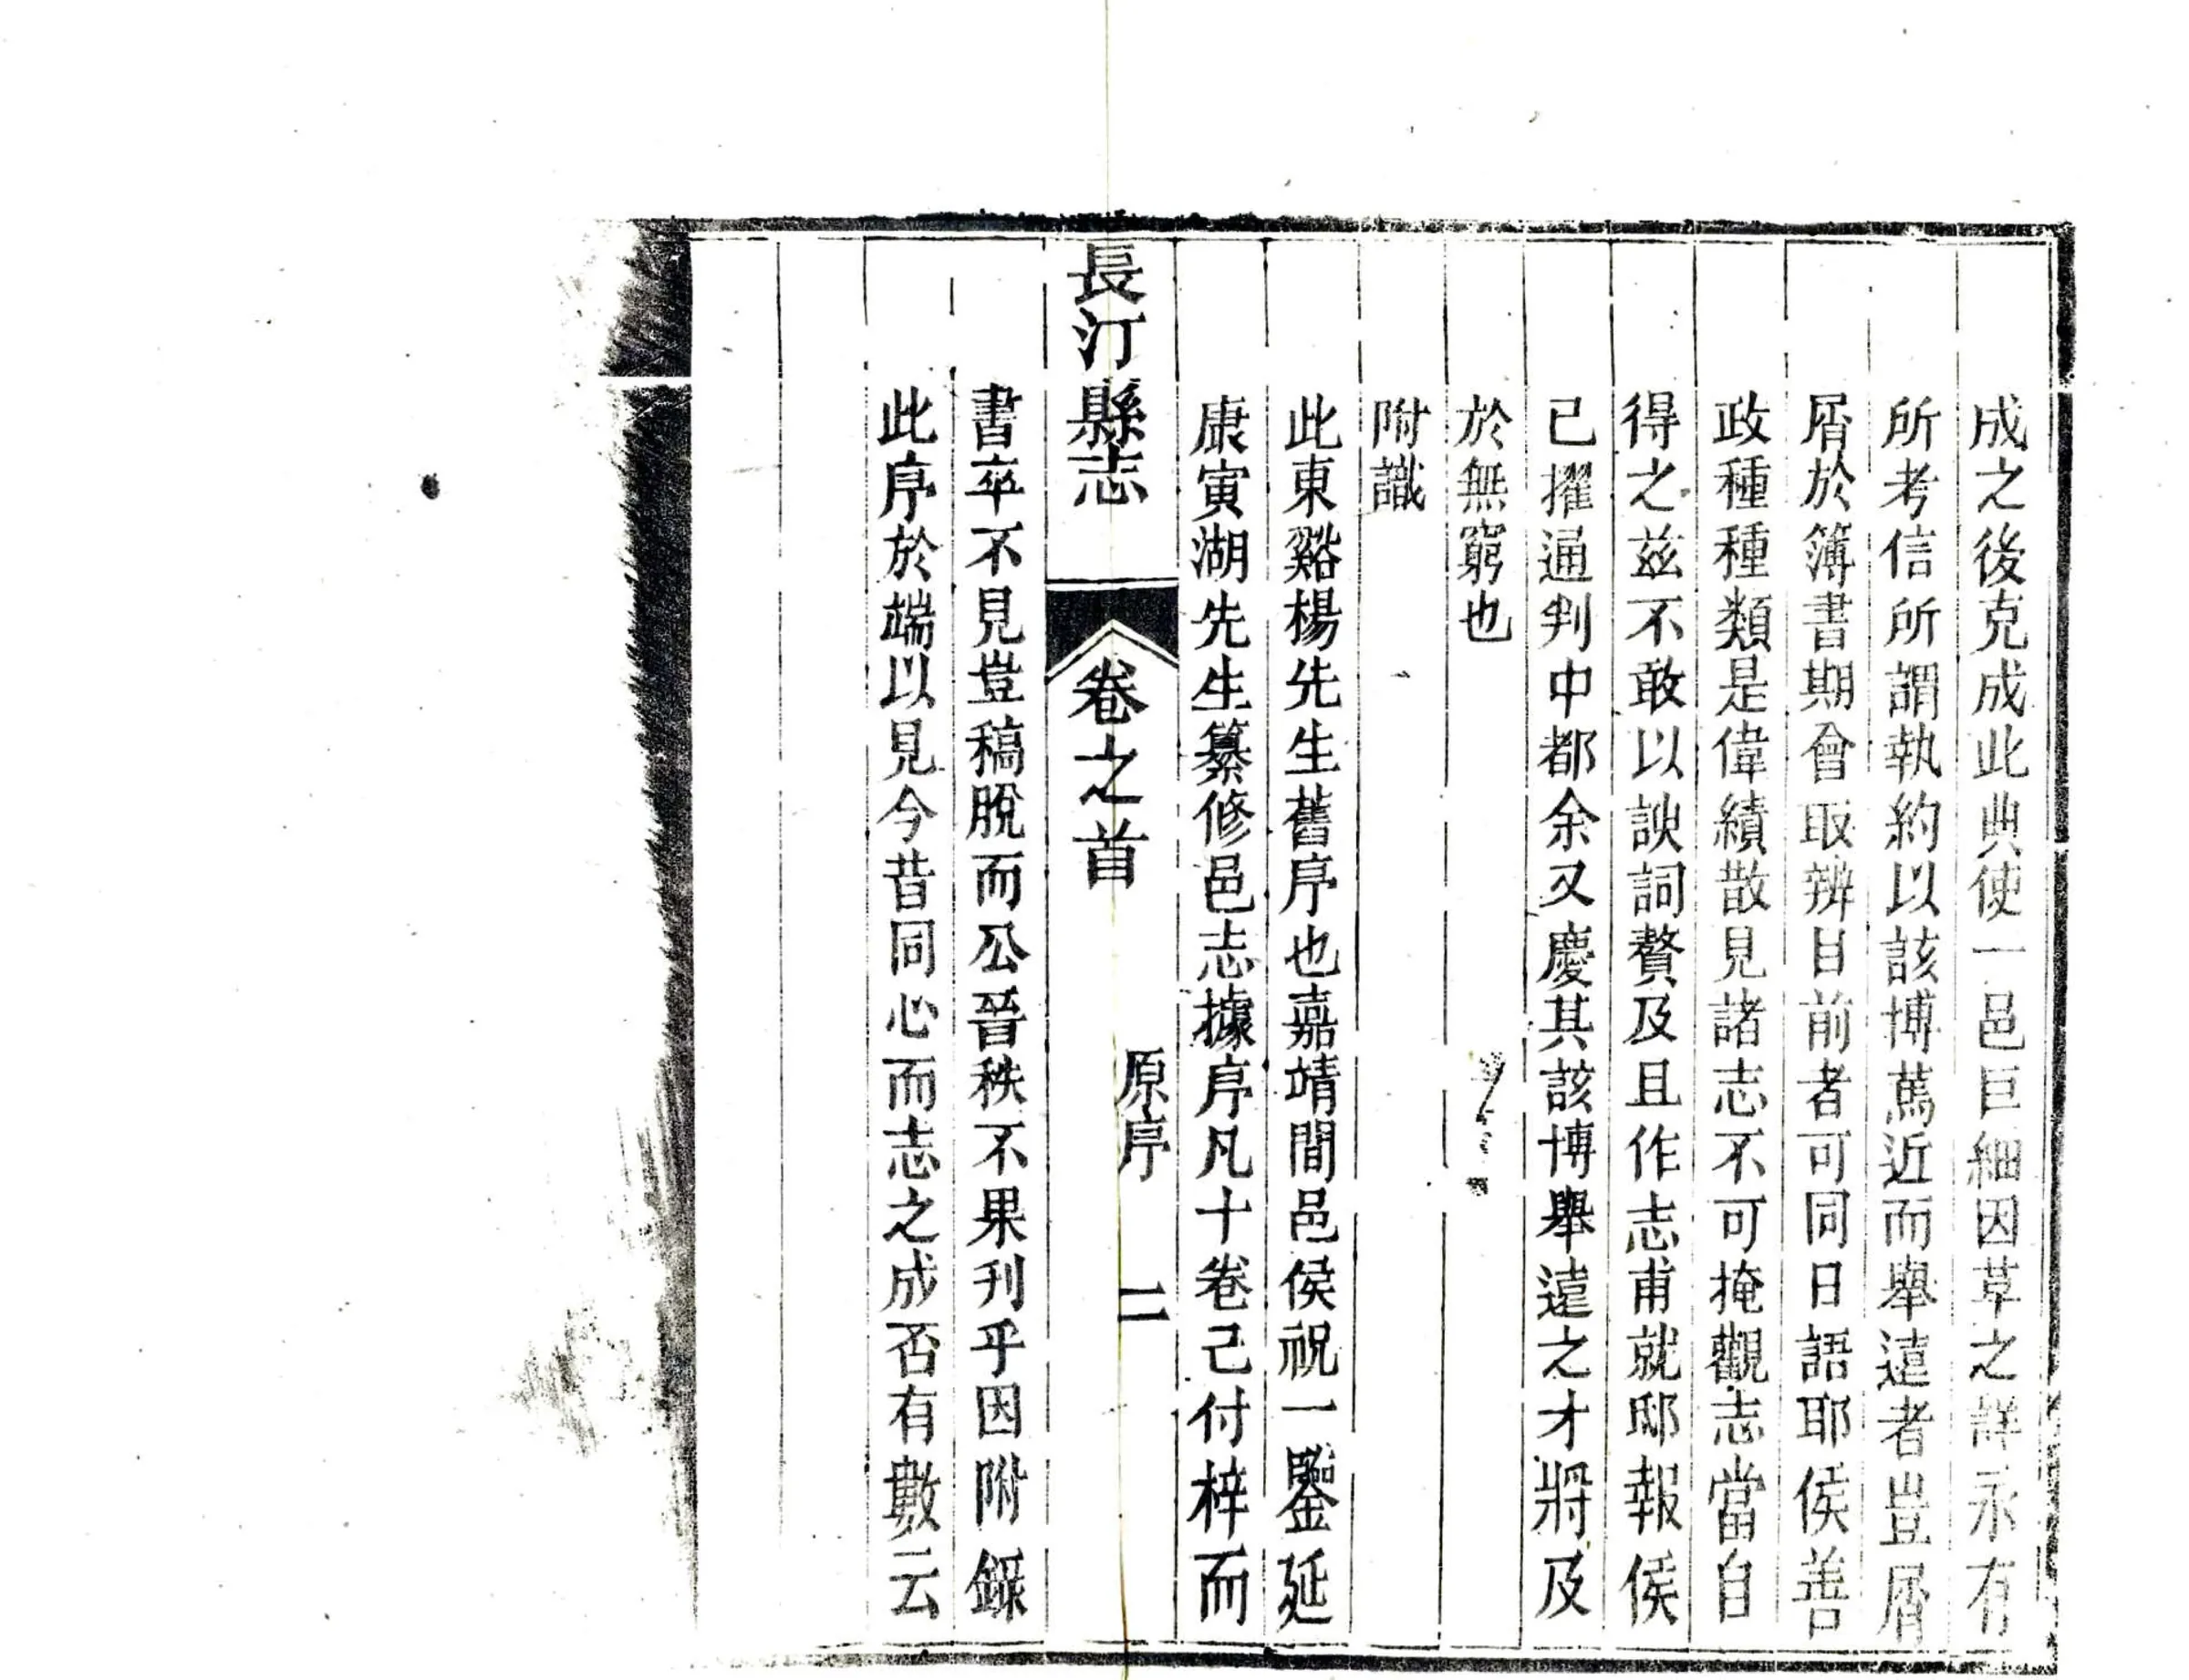 成之後克成此典使一邑巨細因革之詳永有
所考信所謂執約以該博蔫近而舉遠者豈屑
屑於簿書期會取辨目前者可同日語耶侯善
政種種類是偉績散見諸志不可掩觀志當自
得之兹不敢以諛詞贅及且作志甫就邸報侯
已擢通判中都余又慶其該博舉遠之才將及
於無窮也
附識
此東谿楊先生舊序也嘉靖間邑侯祝一鑒延
康寅湖先生纂修邑志據序凡十卷己付梓而
長汀縣志 卷之首 原序 二
書卒不見豈稿脫而公晉秩不果刊乎因附錄
此序於端以見今昔同心而志之成否有數云